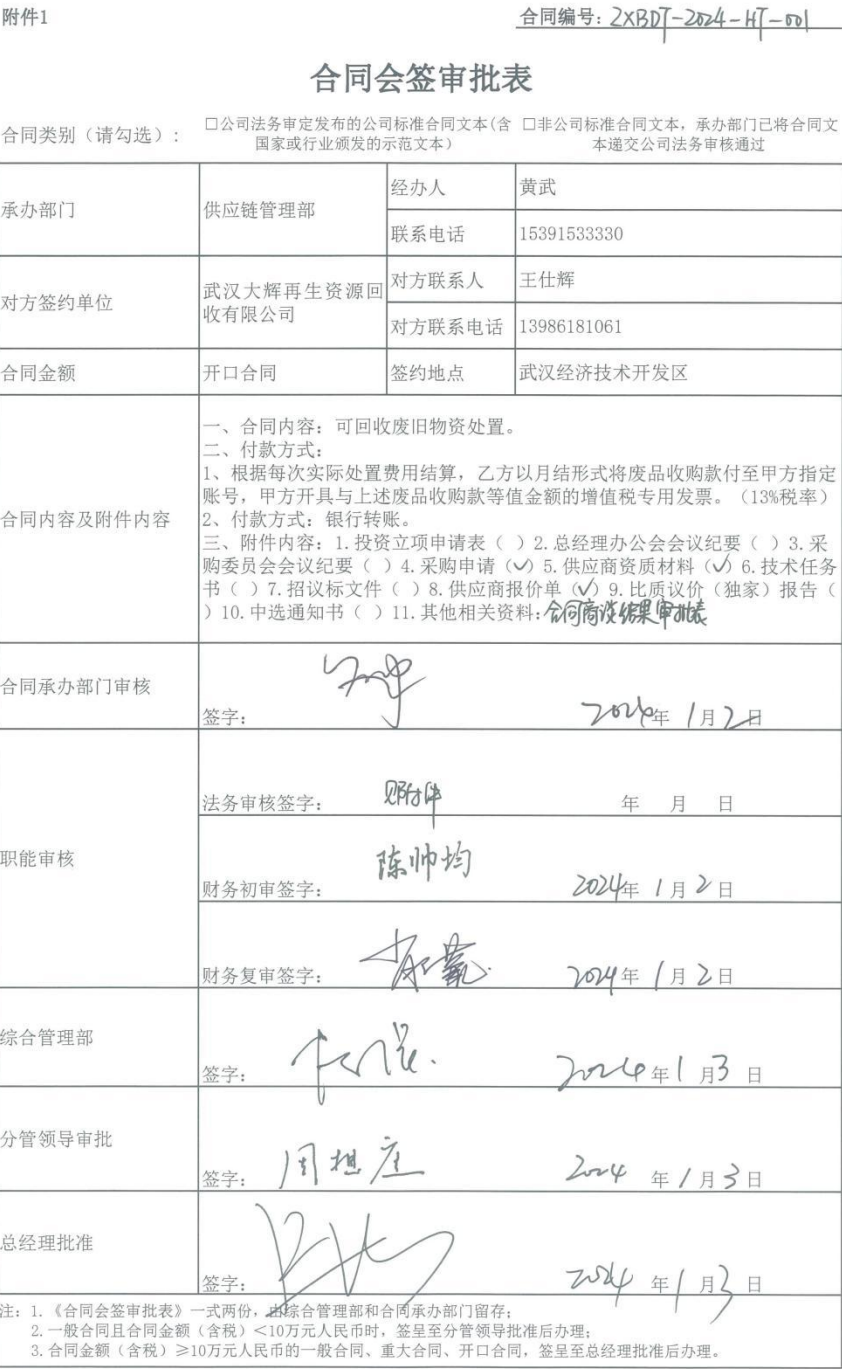 附件1
合同编号：ZXBDT-2024-HT-001
合同会签审批表
合同类别（请勾选）：
□公司法务审定发布的公司标准合同文本(含
国家或行业颁发的示范文本）
□非公司标准合同文本，承办部门已将合同文
本递交公司法务审核通过
承办部门
供应链管理部
经办人
黄武
联系电话
15391533330
对方签约单位
武汉大辉再生资源回
收有限公司
对方联系人
王仕辉
对方联系电话
13986181061
合同金额
开口合同
签约地点
武汉经济技术开发区
合同内容及附件内容
一、合同内容：可回收废旧物资处置。
二、付款方式：
1、根据每次实际处置费用结算，乙方以月结形式将废品收购款付至甲方指定
账号，甲方开具与上述废品收购款等值金额的增值税专用发票。（13%税率）
2、付款方式：银行转账。
三、附件内容：1.投资立项申请表（ ）2.总经理办公会会议纪要（ ）3.采
购委员会会议纪要（ ）4.采购申请（✓）5.供应商资质材料（✓）6.技术任务
书（ ）7.招议标文件（ ）8.供应商报价单（✓）9.比质议价（独家）报告（
）10.中选通知书（ ）11.其他相关资料：合同商谈结果审批表
合同承办部门审核
签字：
2024年 1月2日
职能审核
法务审核签字：
附件
年 月 日
财务初审签字：
陈帅均
2024年 1月2日
财务复审签字：
2024年 1月2日
综合管理部
签字：
2024年1月3日
分管领导审批
签字：
2024年1月3日
总经理批准
签字：
2024年1月3日
注：1.《合同会签审批表》一式两份，由综合管理部和合同承办部门留存；
2.一般合同且合同金额（含税）＜10万元人民币时，签呈至分管领导批准后办理；
3.合同金额（含税）≥10万元人民币的一般合同、重大合同、开口合同，签呈至总经理批准后办理。